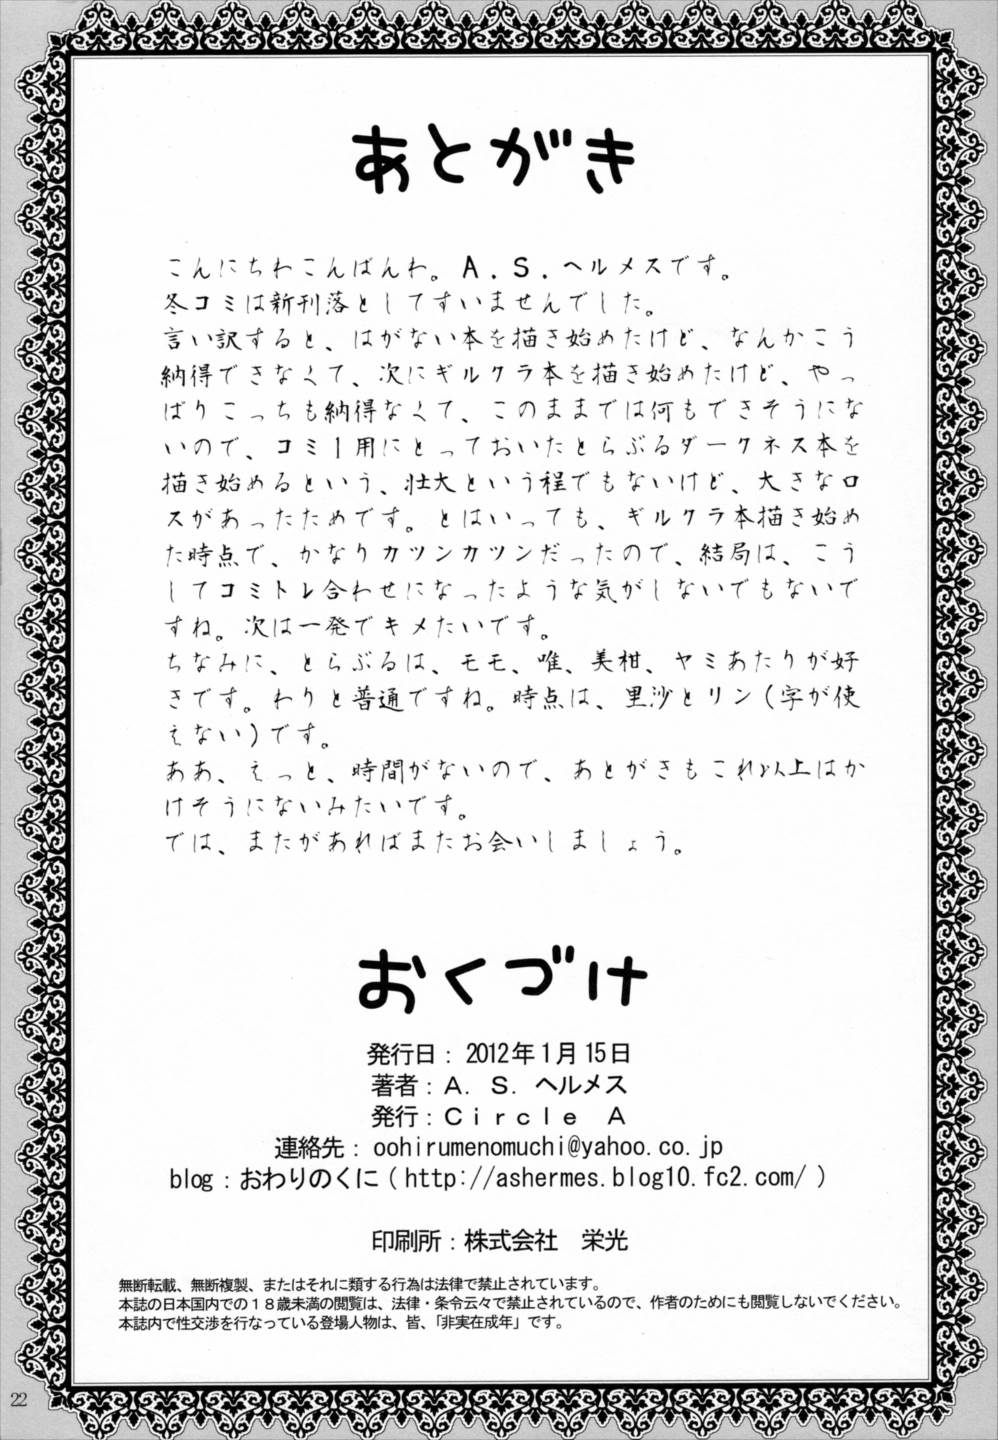 あとがき
こんにちわこんばんわ。A．S．ヘルメスです。
冬コミは新刊落としてすいませんでした。
言い訳すると、はがない本を描き始めたけど、なんかこう
納得できなくて、次にギルクラ本を描き始めたけど、やっ
ぱりこっちも納得なくて、このままでは何もできそうにな
いので、コミ１用にとっておいたとらぶるダークネス本を
描き始めるという、壮大という程でもないけど、大きなロ
スがあったためです。とはいっても、ギルクラ本描き始め
た時点で、かなりカツンカツンだったので、結局は、こう
してコミトレ合わせになったような気がしないでもないで
すね。次は一発でキメたいです。
ちなみに、とらぶるは、モモ、唯、美柑、ヤミあたりが好
きです。わりと普通ですね。時点は、里沙とリン（字が使
えない）です。
ああ、えっと、時間がないので、あとがきもこれ以上はか
けそうにないみたいです。
では、またがあればまたお会いしましょう。
おくづけ
発行日：2012年１月15日
著者：Ａ．Ｓ．ヘルメス
発行：Ｃｉｒｃｌｅ　Ａ
連絡先：oohirumenomuchi@yahoo.co.jp
blog：おわりのくに（http://ashermes.blog10.fc2.com/）
印刷所：株式会社　栄光
無断転載、無断複製、またはそれに類する行為は法律で禁止されています。
本誌の日本国内での１８歳未満の閲覧は、法律・条令云々で禁止されているので、作者のためにも閲覧しないでください。
本誌内で性交渉を行なっている登場人物は、皆、「非実在成年」です。
22